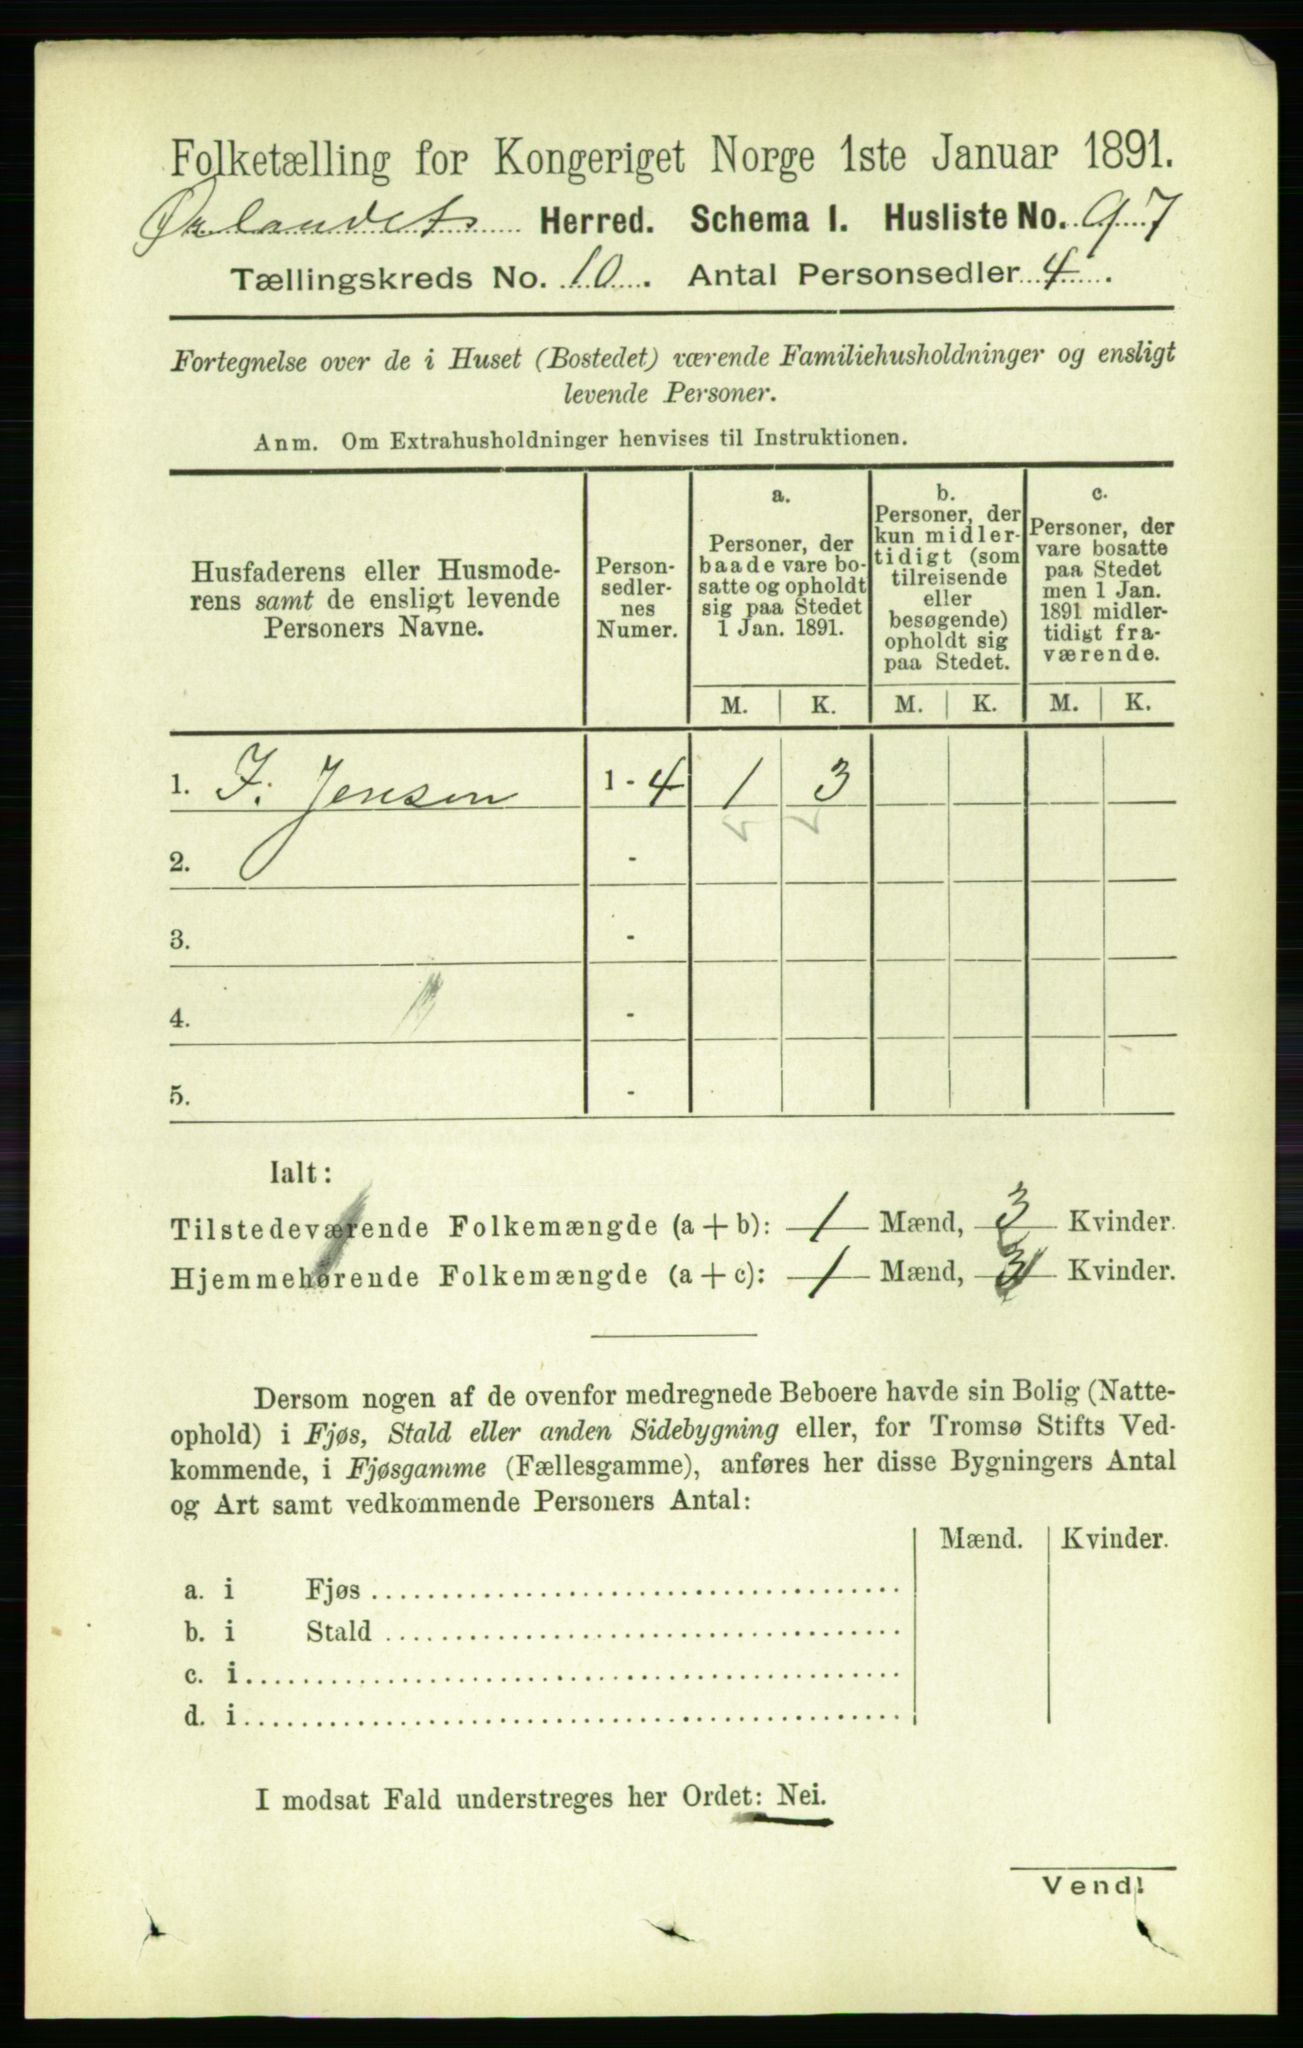 Folketælling for Kongeriget Norge 1ste Januar 1891.
Ørlandets Herred. Schema I. Husliste No. 97
Tællingskreds No. 10. Antal Personsedler 4.
Fortegnelse over de i Huset (Bostedet) værende Familiehusholdninger og ensligt
levende Personer.
Anm. Om Extrahusholdninger henvises til Instruktionen.
Husfaderens eller Husmode-
rens samt de ensligt levende
Personers Navne.
Person-
sedler-
nes
Numer.
a.
Personer, der
baade vare bo-
satte og opholdt
sig paa Stedet
1 Jan. 1891.
b.
Personer, der
kun midler-
tidigt (som
tilreisende
eller
besøgende)
opholdt sig
paa Stedet.
c.
Personer, der
vare bosatte
paa Stedet
men 1 Jan.
1891 midler-
tidigt fra-
værende.
M. K. M. K. M. K.
1. J. Jensen 1 - 4 1 3
2. -
3. -
4. -
5. -
Ialt:
Tilstedeværende Folkemængde (a + b): 1 Mænd, 3 Kvinder.
Hjemmehørende Folkemængde (a + c): 1 Mænd, 3 Kvinder.
Dersom nogen af de ovenfor medregnede Beboere havde sin Bolig (Natte-
ophold) i Fjøs, Stald eller anden Sidebygning eller, for Tromsø Stifts Ved-
kommende, i Fjøsgamme (Fællesgamme), anføres her disse Bygningers Antal
og Art samt vedkommende Personers Antal:
Mænd. Kvinder.
a. i Fjøs
b. i Stald
c. i
d. i
I modsat Fald understreges her Ordet: Nei.
Vend!